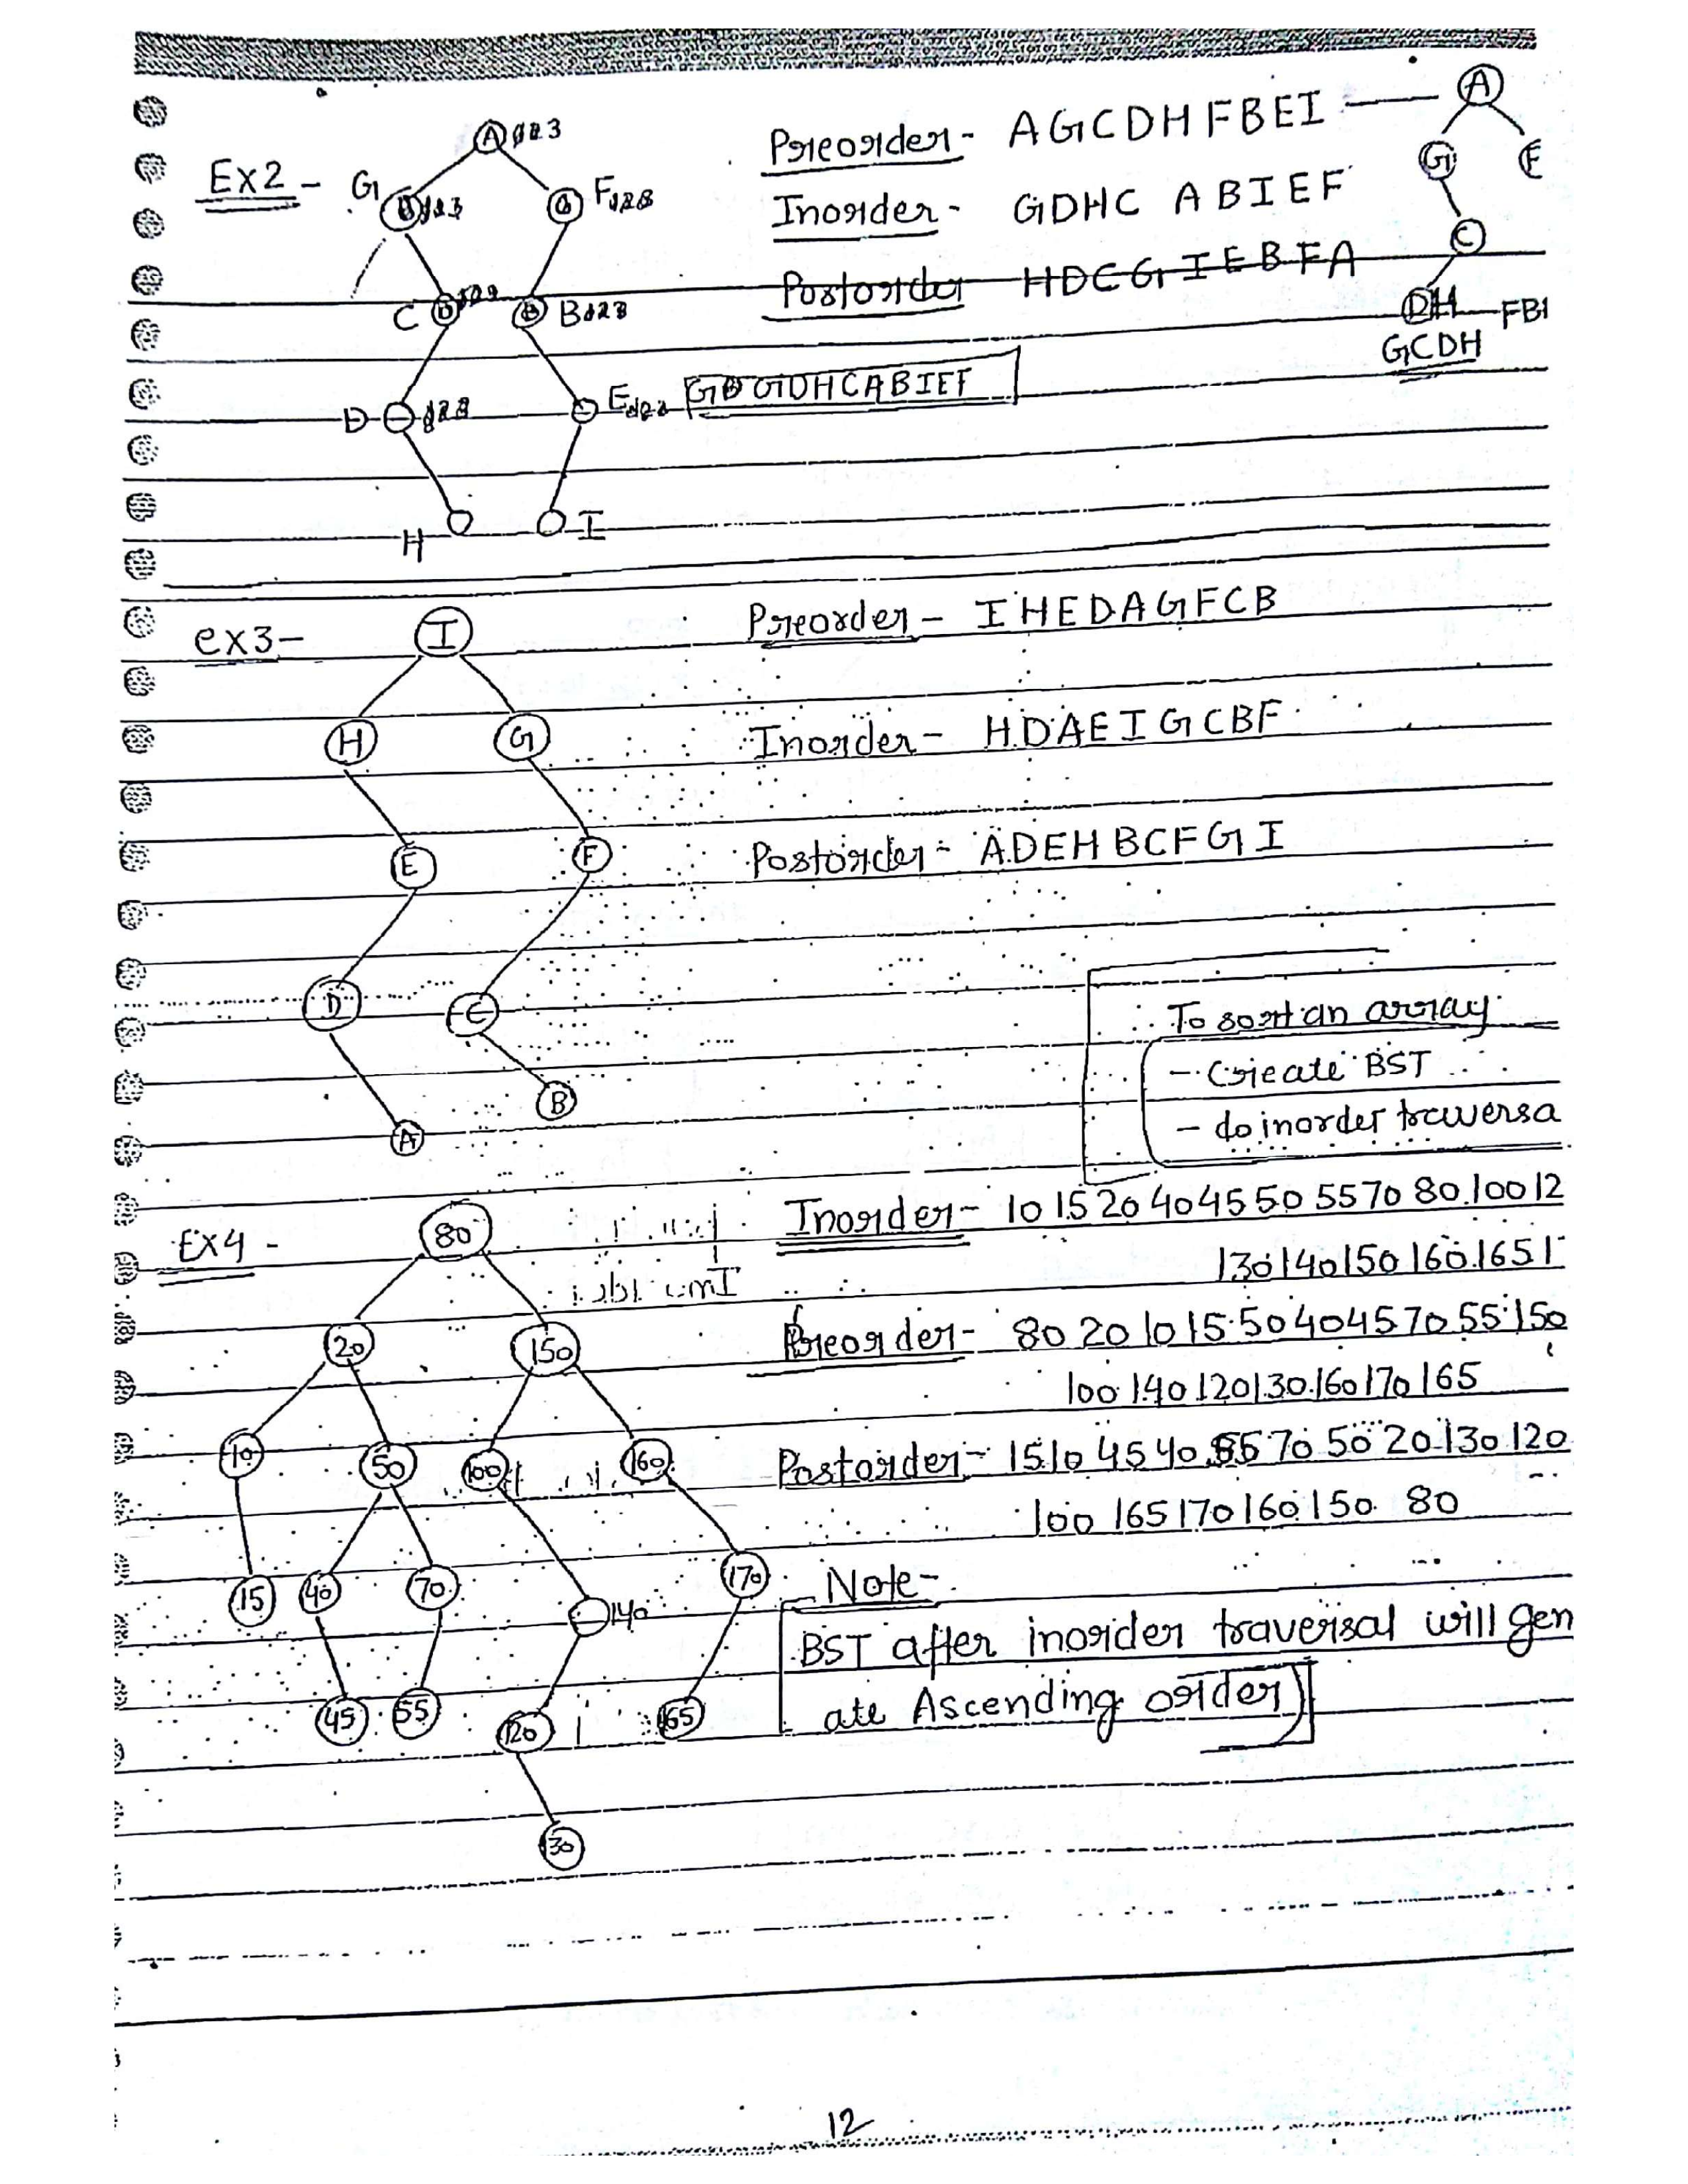 Ex2 -
A 123
G 123
F 123
C 123
B 123
D 123
E 123
H
I
Preorder - AGCDHFBEI
Inorder - GDHC ABIEF
Postorder HDCGIEBFA
GDHCABIEF
A
G F
C
DH FBI
GCDH
ex3 -
I
H G
E F
D C
B
A
Preorder - IHEDAGFCB
Inorder - HDAEIGCBF
Postorder - ADEHBCFGI
To sort an array
- Create BST
- do inorder traversa
Ex4 -
80
20 150
10 50 100 160
15 40 70 140 170
45 55 120 165
130
Inorder - 10 15 20 40 45 50 55 70 80 100 12
130 140 150 160 165 1
Preorder - 80 20 10 15 50 40 45 70 55 150
100 140 120 130 160 170 165
Postorder - 15 10 45 40 55 70 50 20 130 120
100 165 170 160 150 80
Note -
BST after inorder traversal will gen
ate Ascending order
12